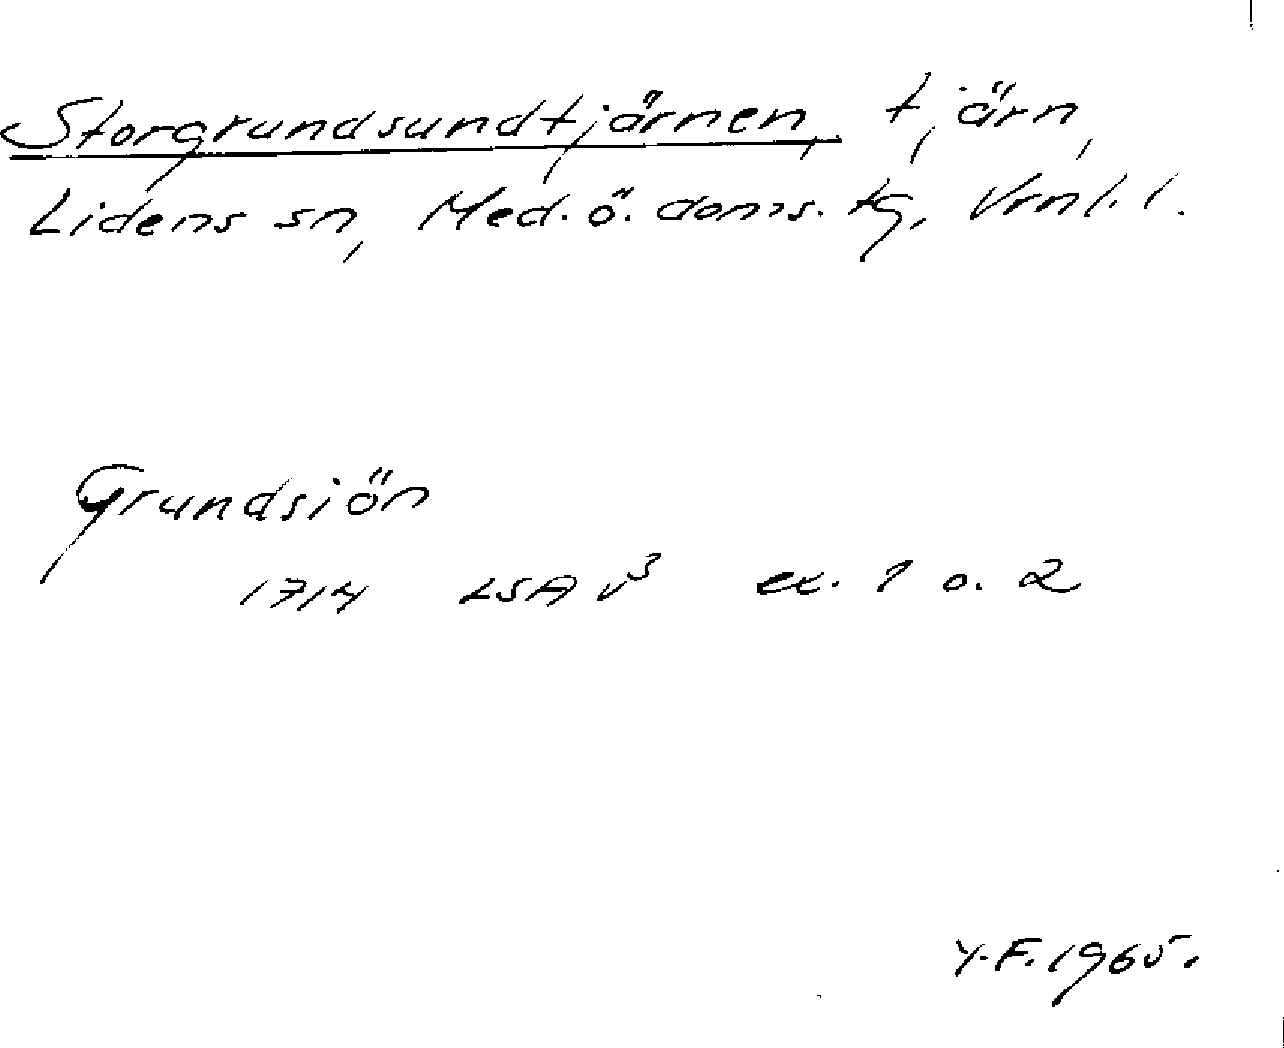 Storgrundsundtjärnen, tjärn,
Lidens sn, Med. ö. doms. tg, Vrnl. l.
Grundsiön
1714 LSA v³ ex. 1 o. 2
Y.F. 1965.